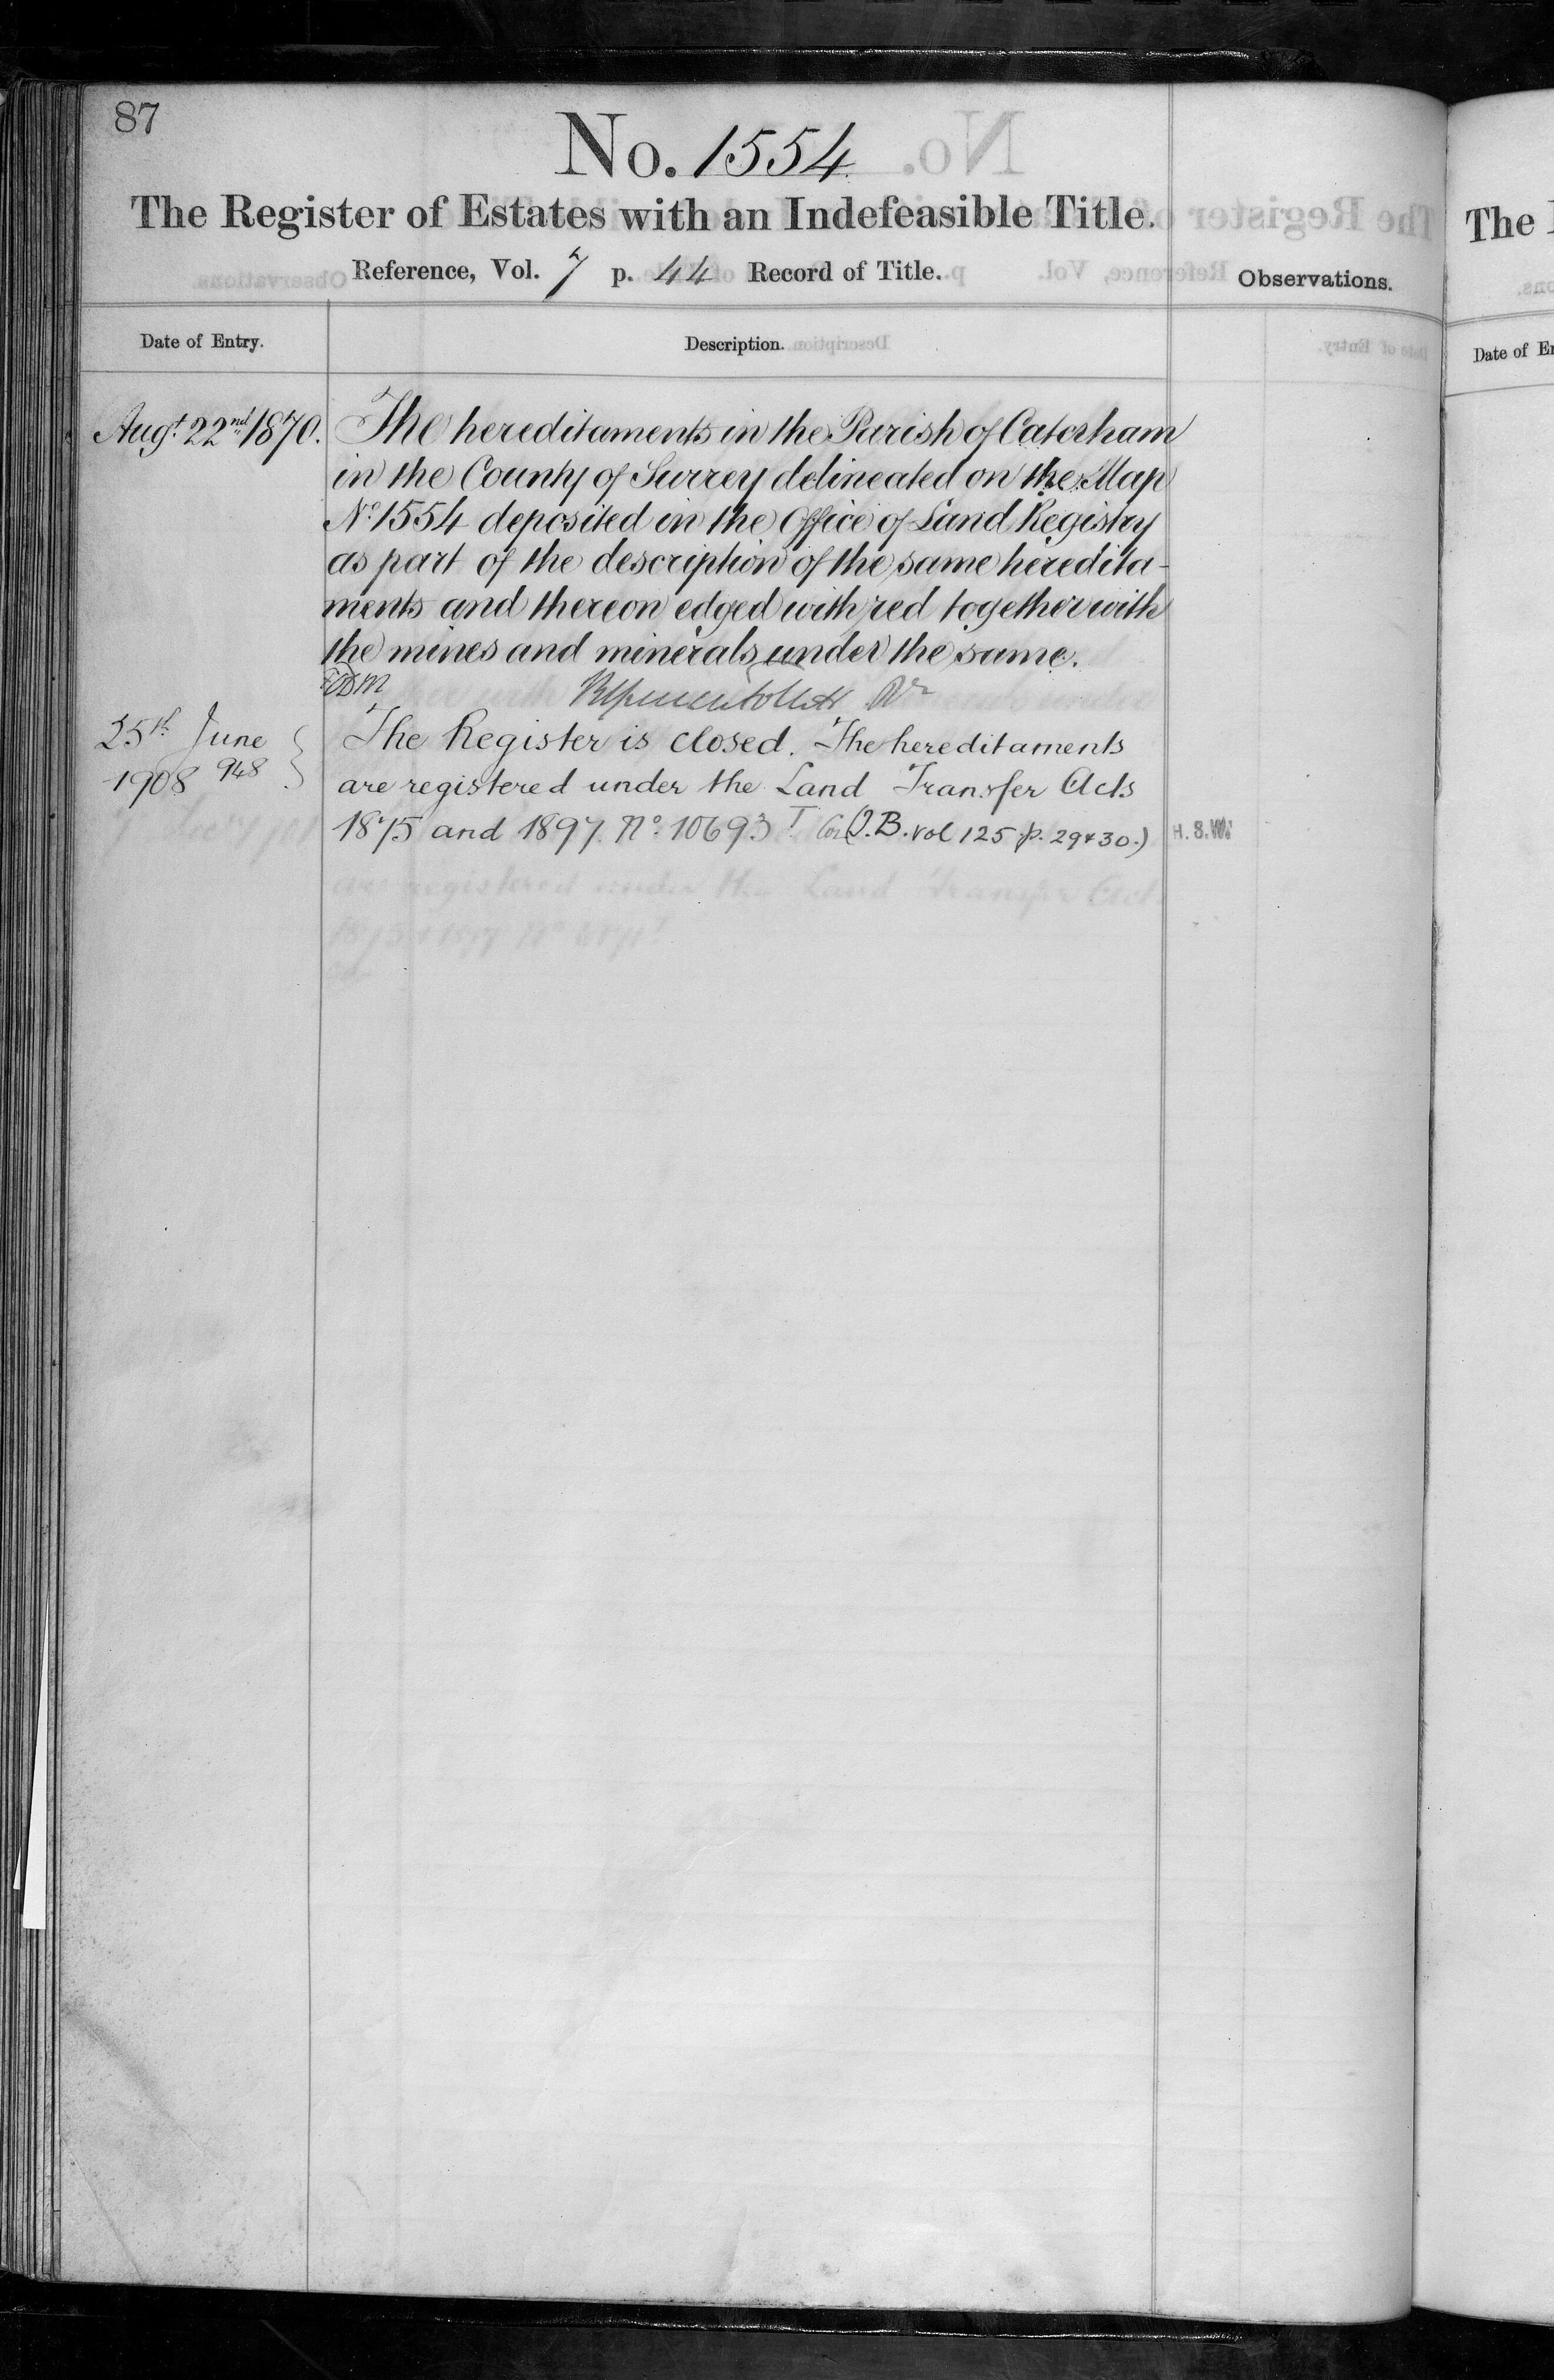 87
No. 1554
The Register of Estates with an Indefeasible Title.
Reference, Vol. 7 p. 44 Record of Title.
Observations.
Date of Entry.
Description.
Augt. 22nd 1870.
The hereditaments in the Parish of Caterham
in the County of Surrey delineated on the Map
No. 1554 deposited in the Office of Land Registry
as part of the description of the same heredita-
ments and thereon edged with red together with
the mines and minerals under the same.
25th June
1908 948
The Register is closed. The hereditaments
are registered under the Land Transfer Acts
1875 and 1897. No. 10693 (I.B. vol 125 p. 29 & 30.)
H.S.W.
The
Date of